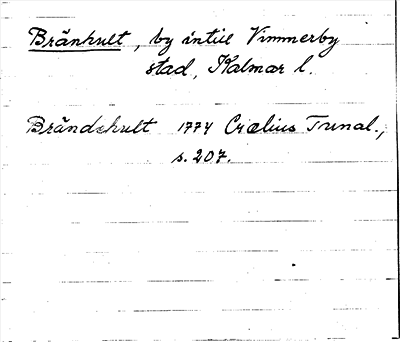 Bränhult, by intill Vimmerby
stad, Kalmar l.
Brändehult 1774 Crælius Tunal.,
s. 207.